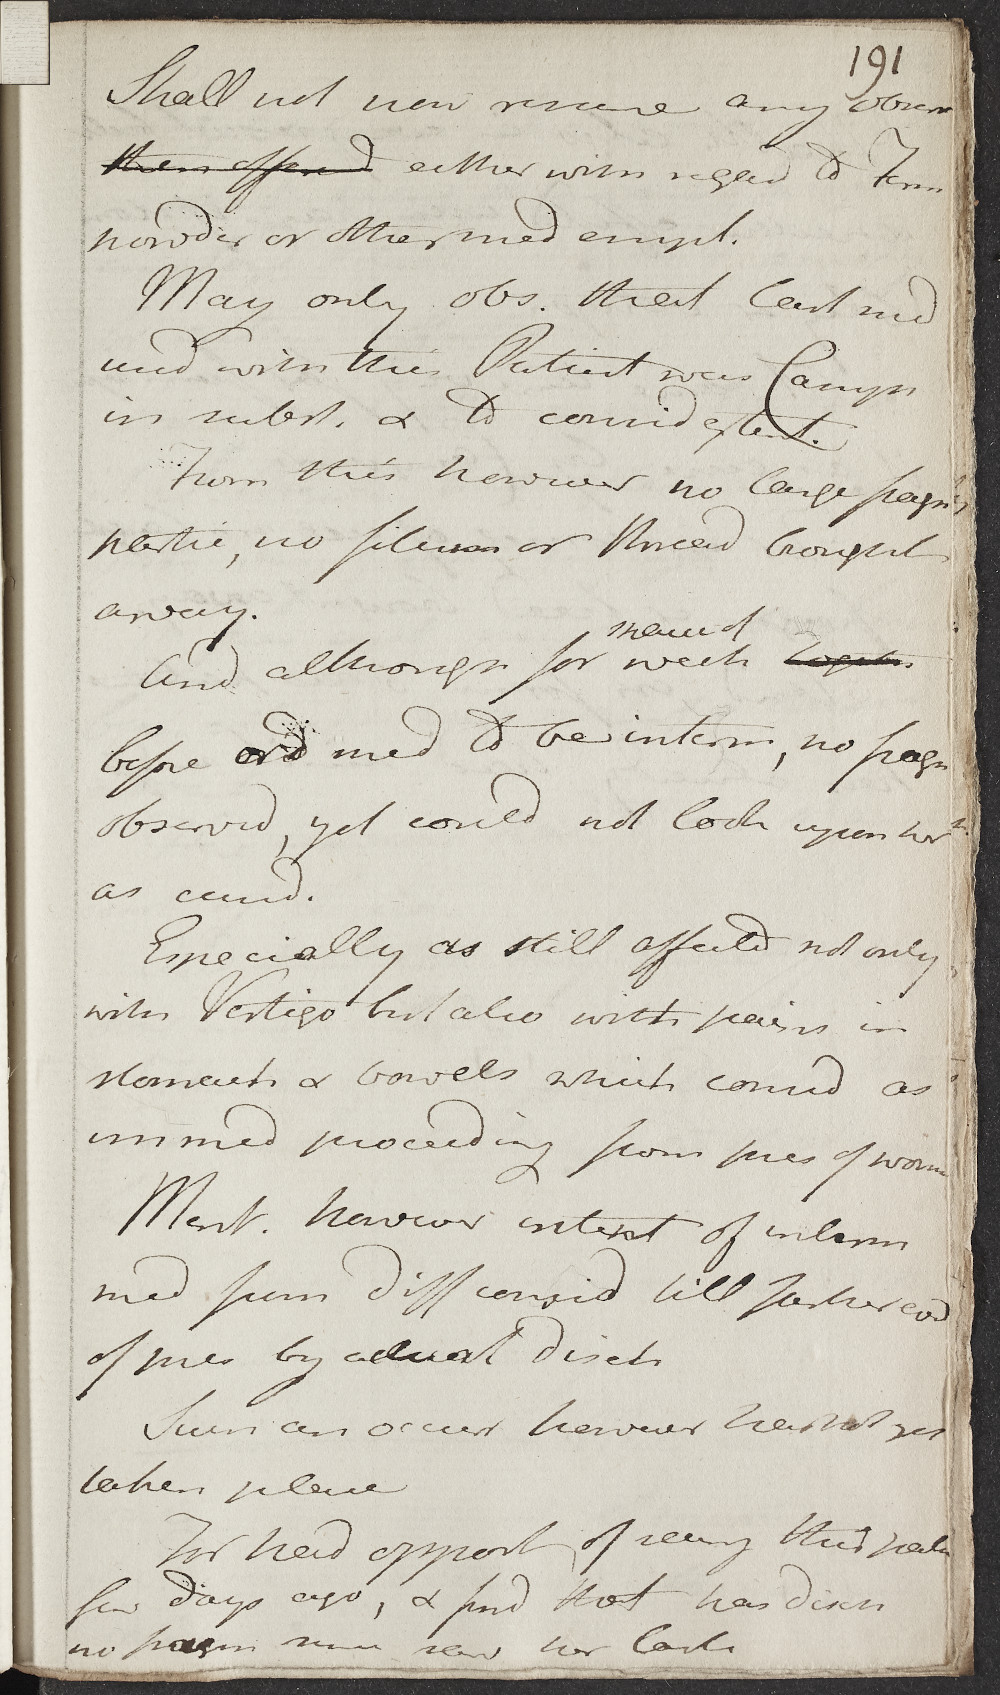 191
Shall not now resume any observ
then offered either with regard to Fern
powder or other med empl.
May only obs. that last med
used with this Patient was Camph
in subst. & to considy extent.
From this however no large fragm
partic, no filum or thread brought
away.
several
And although for week together
before ord med to be interm, no fragm
observed, yet could not look upon her
as cured.
Especially as still affected not only
with Vertigo but also with pains in
stomach & bowels which consid as
immed proceeding from pres of worm
Ment. however intent of interm
med from diff consid till farther evid
of pres by actual disch
Such an occurr however has not yet
taken place
For had opport of seeing this patien
few days ago, & find that has disch
no fragm since saw her last